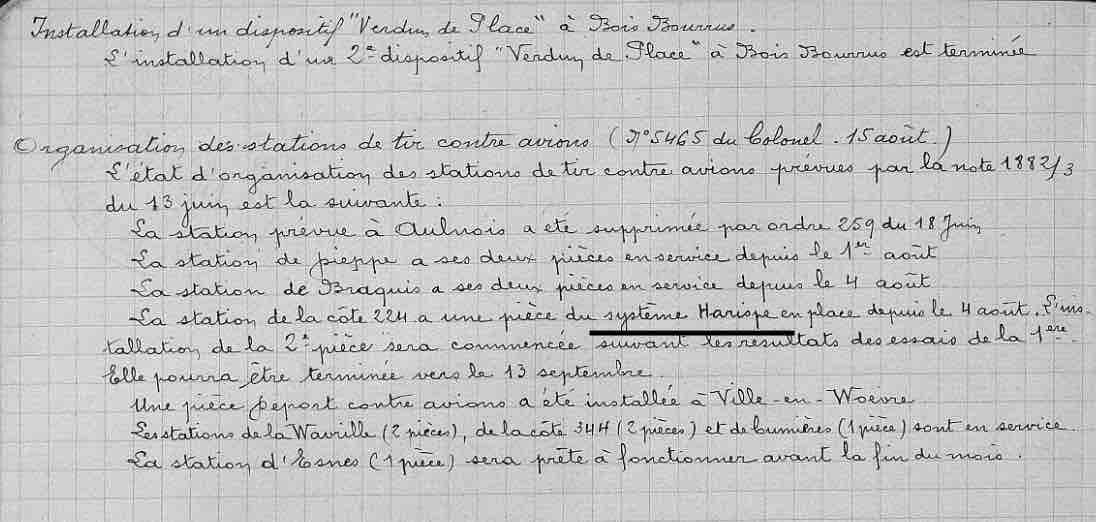 Installation d'un dispositif "Verdun de Place" à Bois Bourrus.
L'installation d'un 2e dispositif "Verdun de Place" à Bois Bourrus est terminée
Organisation des stations de tir contre avions (N° 5465 du Colonel. 15 août.)
L'état d'organisation des stations de tir contre avions prévues par la note 1882/3
du 13 juin est la suivante :
La station prévue à Aulnois a été supprimée par ordre 259 du 18 Juin
La station de pieppe a ses deux pièces en service depuis le 1er août
La station de Braquis a ses deux pièces en service depuis le 4 août
La station de la côte 224 a une pièce du système Harispe en place depuis le 4 août. L'ins-
tallation de la 2e pièce sera commencée suivant les résultats des essais de la 1ère.
Elle pourra être terminée vers le 13 septembre.
Une pièce Peport contre avions a été installée à Ville-en-Woëvre
Les stations de la Wavrille (2 pièces), de la côte 344 (2 pièces) et de Cumières (1 pièce) sont en service.
La station d'Esnes (1 pièce) sera prête à fonctionner avant la fin du mois.